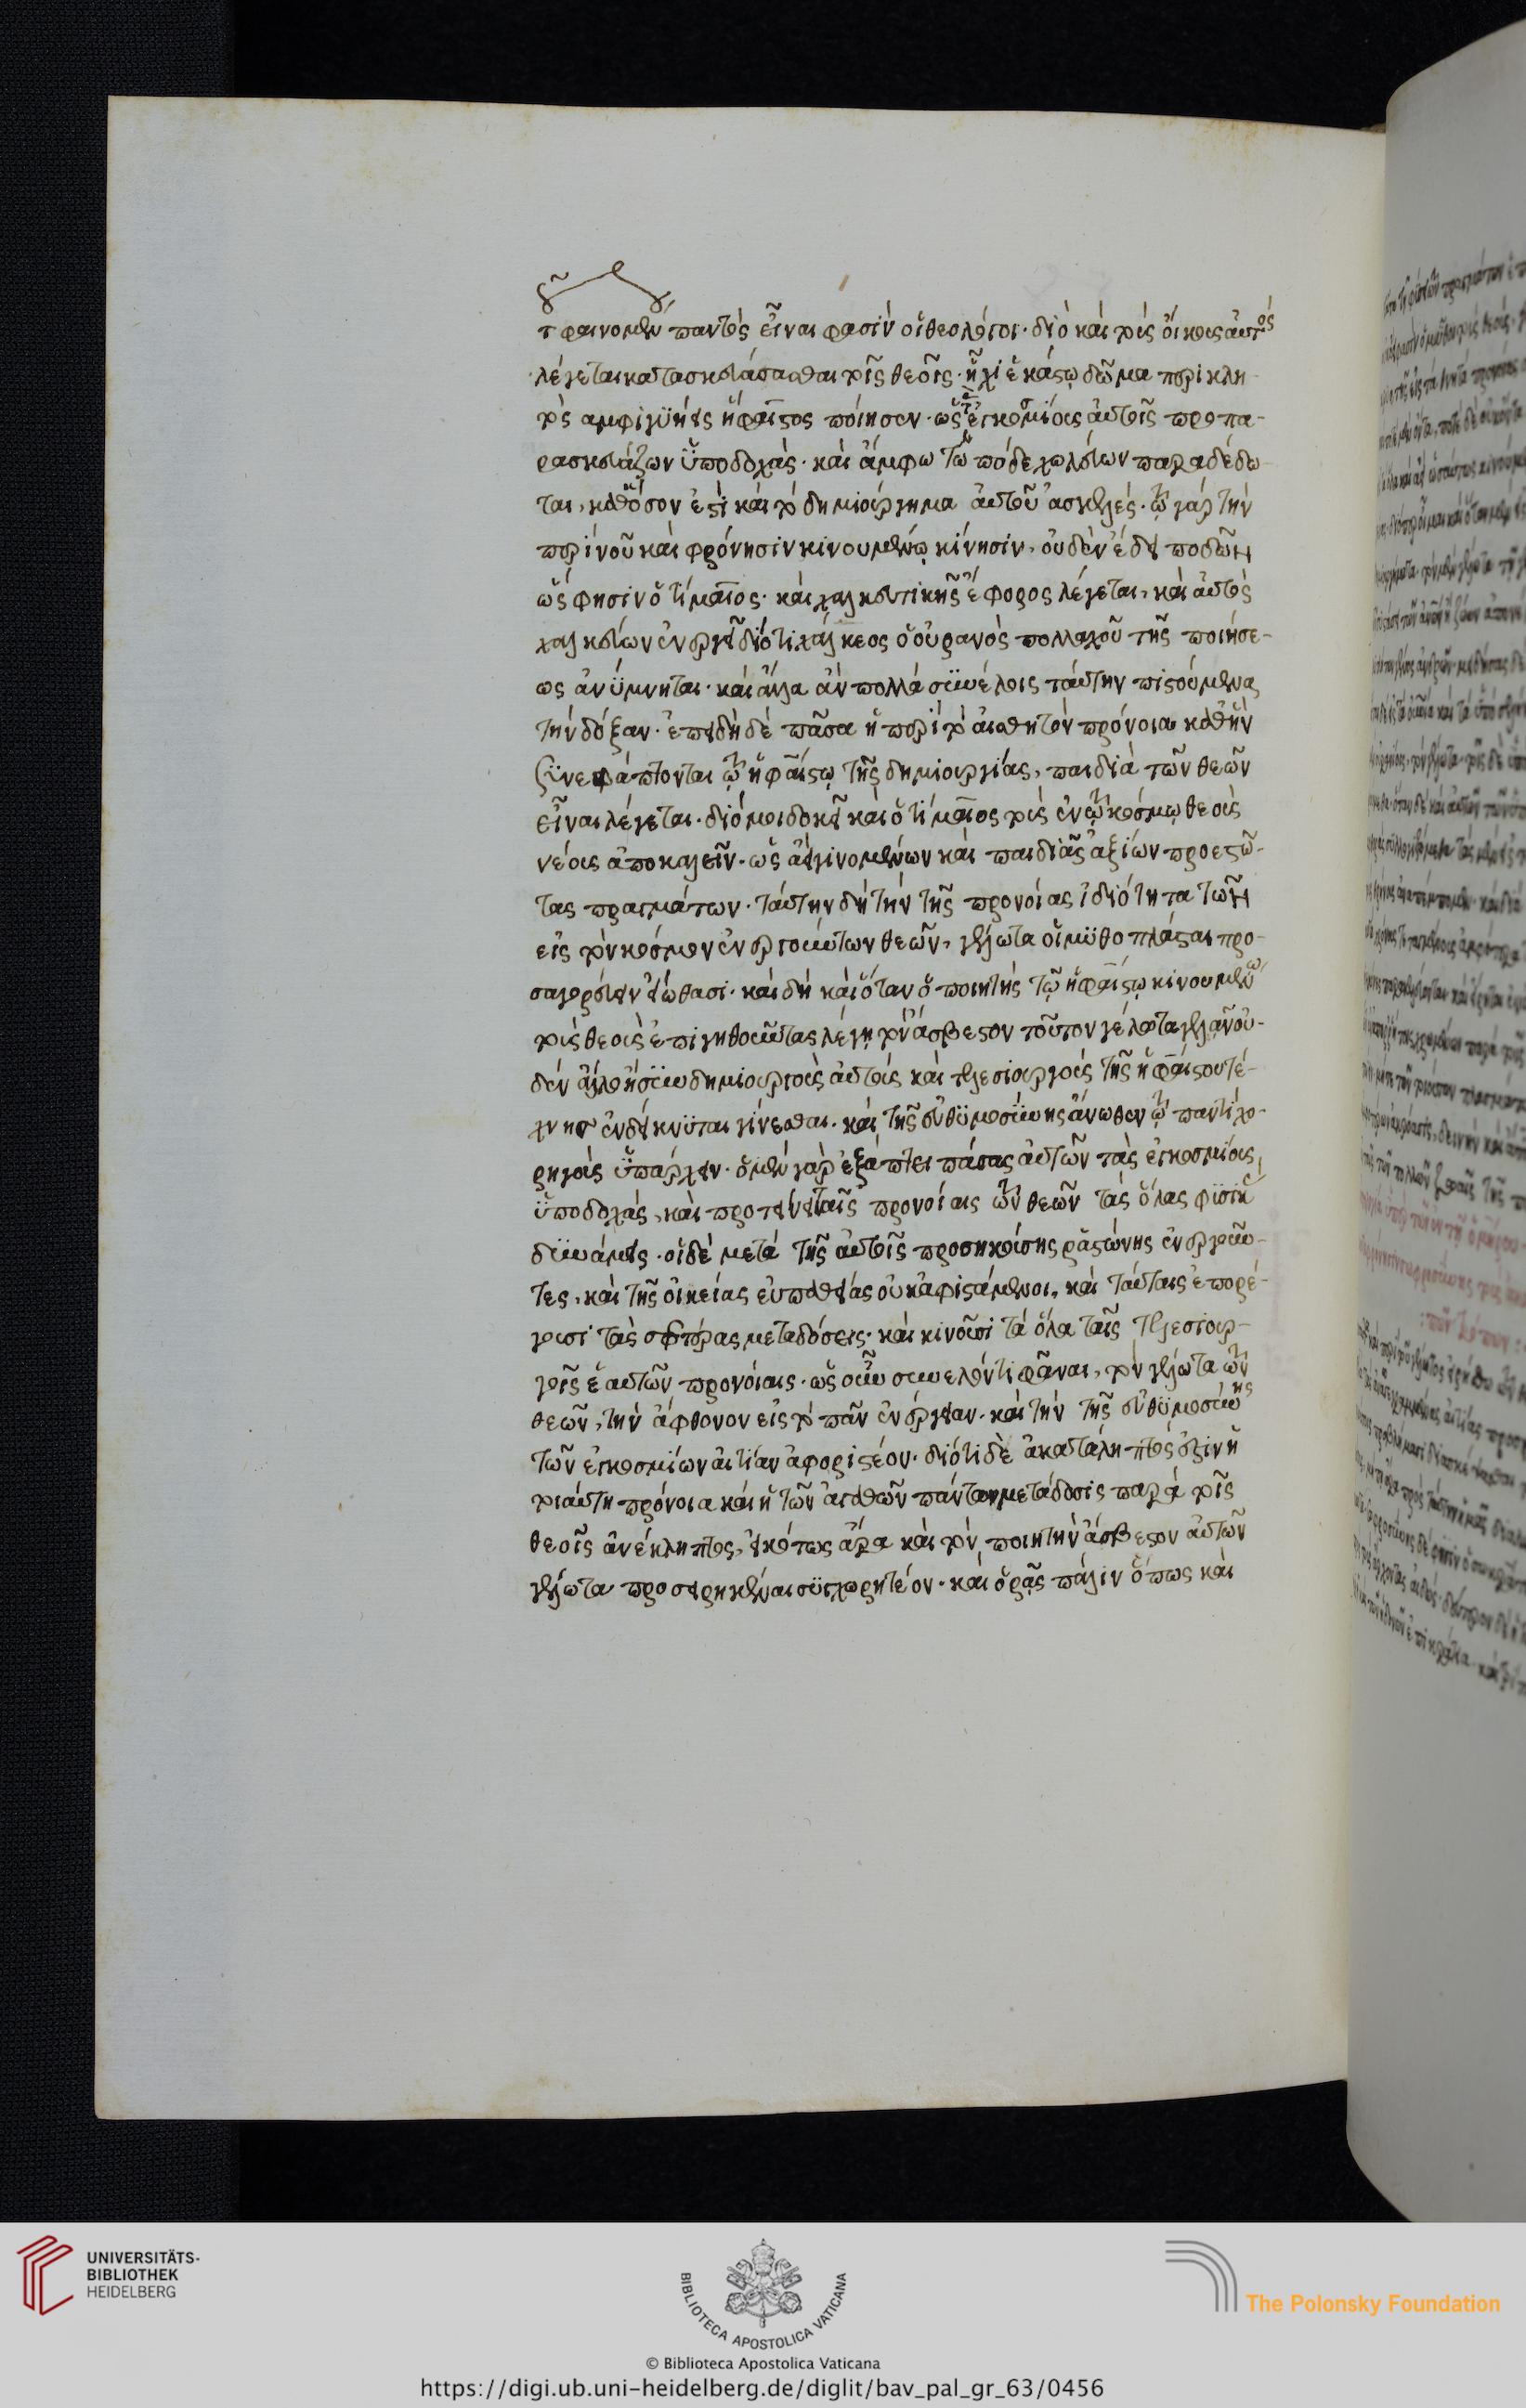 τ φαινομένου παντὸς εἶναι φασὶν οἱ θεολόγοι· διὸ καὶ τοὺς οἴκους αὐτὸς
λέγεται κατασκευάσασθαι τοῖς θεοῖς· ἧχι ἑκάστῳ δῶμα περικλη-
τὸς ἀμφιγυήεις ἥφαιστος ποίησεν· ὡς τὰς ἐγκοσμίους αὐτοῖς προπα-
ρασκευάζων ὑποδοχάς· καὶ ἄμφω τὼ πόδε χωλεύων παραδέδο-
ται, καθόσον ἐστὶ καὶ τὸ δημιούργημα αὐτοῦ ἀσκελές· τῷ γὰρ τὴν
περὶ νοῦ καὶ φρόνησιν κινουμένῳ κίνησιν, οὐδὲν ἔδει ποδῶν
ὥς φησιν ὁ τίμαιος· καὶ χαλκευτικῆς ἔφορος λέγεται, καὶ αὐτὸς
χαλκεύων ἐνεργεῖ διότι χάλκεος ὁ οὐρανὸς πολλαχοῦ τῆς ποιήσε-
ως ἀνύμνηται· καὶ ἄλλα ἂν πολλὰ συνέλοις ταύτην πιστούμενα
τὴν δόξαν· ἐπειδὴ δὲ πᾶσα ἡ περὶ τὸ αἰσθητὸν πρόνοια καθ' ἣν
συνεφάπτονται τῷ ἡφαίστῳ τῆς δημιουργίας, παιδιὰ τῶν θεῶν
εἶναι λέγεται· διό μοι δοκεῖ καὶ ὁ τίμαιος τοὺς ἐν τῷ κόσμῳ θεοὺς
νέους ἀποκαλεῖν· ὡς ἀεὶ γινομένων καὶ παιδιᾶς ἀξίων προεστῶ-
τας πραγμάτων· ταύτην δὴ τὴν τῆς προνοίας ἰδιότητα τῶν
εἰς τὸν κόσμον ἐνεργούντων θεῶν, γέλωτα οἱ μυθοπλάσται προ-
σαγορεύειν εἰώθασι· καὶ δὴ καὶ ὅταν ὁ ποιητὴς τῷ ἡφαίστῳ κινουμένῳ
τοὺς θεοὺς ἐπιγηθοῦντας λέγῃ τὸν ἄσβεστον τοῦτον γέλωτα γελᾶν οὐ-
δὲν ἄλλο ἢ συνδημιουργοὺς αὐτοὺς καὶ τελεσιουργοὺς τῆς ἡφαίστου τέ-
χνης ἐνδείκνυται γίνεσθαι· καὶ τῆς εὐθυμοσύνης ἄνωθεν τῷ παντὶ χο-
ρηγοὺς ὑπάρχειν· ὁ μὲν γὰρ ἐξάπτει πάσας αὐτῶν τὰς ἐγκοσμίους
ὑποδοχάς, καὶ προτείνει ταῖς προνοίαις τῶν θεῶν τὰς ὅλας φυσικὰς
δυνάμεις· οἱ δὲ μετὰ τῆς αὐτοῖς προσηκούσης ῥᾳστώνης ἐνεργοῦν-
τες, καὶ τῆς οἰκείας εὐπαθείας οὐκ ἀφιστάμενοι, καὶ ταύταις ἐπορέ-
γουσι τὰς σφετέρας μεταδόσεις· καὶ κινοῦσι τὰ ὅλα ταῖς τελεσιουρ-
γοῖς ἑαυτῶν προνοίαις· ὡς οὖν συνελόντι φάναι, τὸν γέλωτα τῶν
θεῶν, τὴν ἄφθονον εἰς τὸ πᾶν ἐνέργειαν· καὶ τὴν τῆς εὐθυμοσύνης
τῶν ἐγκοσμίων αἰτίαν ἀφοριστέον· διότι δὲ ἀκατάληπτός ἐστιν ἡ
τοιαύτη πρόνοια καὶ ἡ τῶν ἀγαθῶν πάντων μετάδοσις παρὰ τοῖς
θεοῖς ἀνέκλειπτος, εἰκότως ἄρα καὶ τὸν ποιητὴν ἄσβεστον αὐτῶν
γέλωτα προσειρηκέναι συγχωρητέον· καὶ ὁρᾷς πάλιν ὅπως καὶ
UNIVERSITÄTS-
BIBLIOTHEK
HEIDELBERG
BIBLIOTECA APOSTOLICA VATICANA
The Polonsky Foundation
© Biblioteca Apostolica Vaticana
https://digi.ub.uni-heidelberg.de/diglit/bav_pal_gr_63/0456